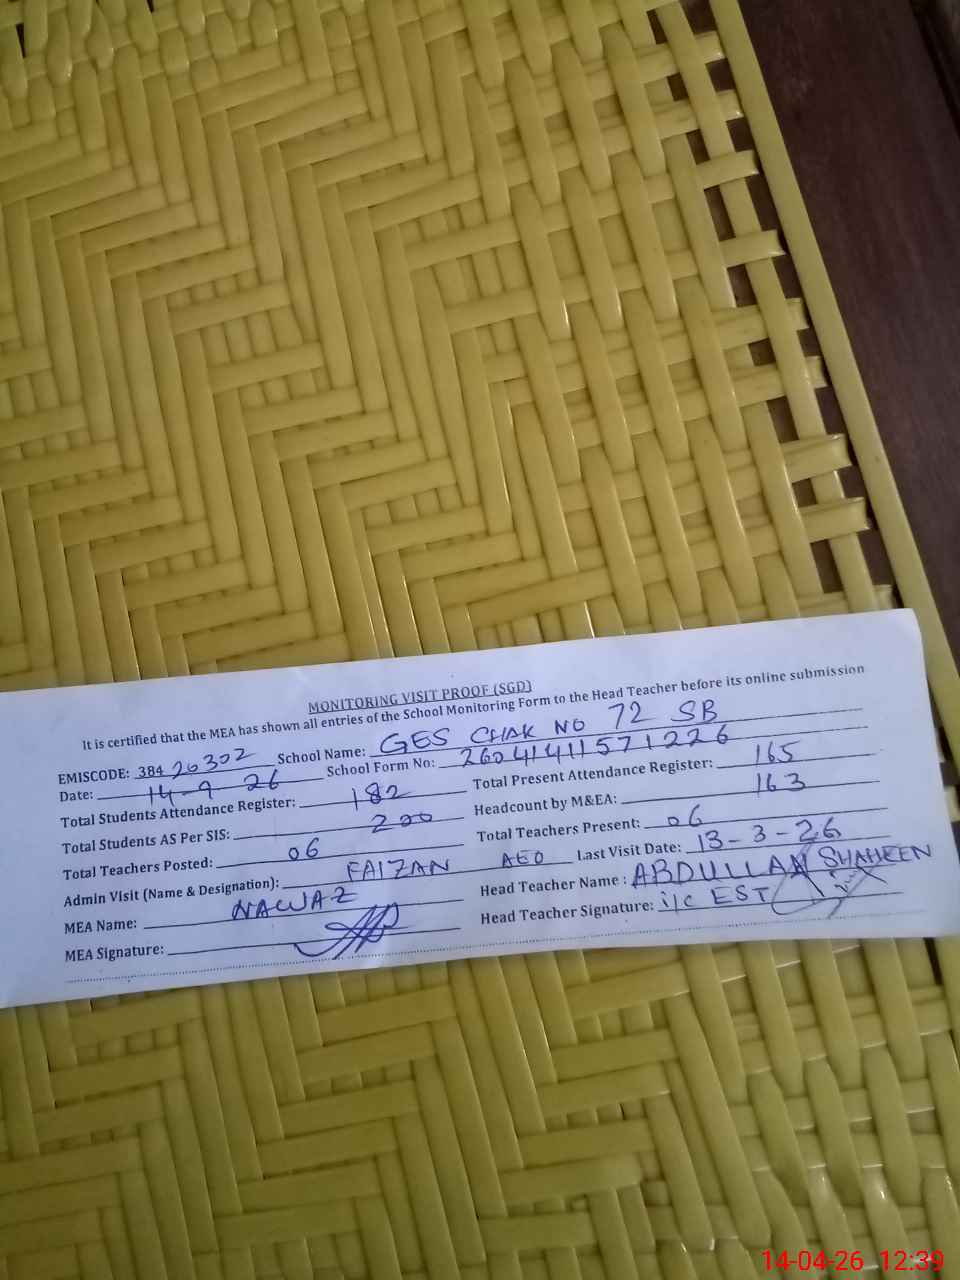 MONITORING VISIT PROOF (SGD)
It is certified that the MEA has shown all entries of the School Monitoring Form to the Head Teacher before its online submission
EMISCODE: 38420302 School Name: GES CHAK NO 72 SB
Date: 14-9 26 School Form No: 26041411571226
Total Students Attendance Register: 182 Total Present Attendance Register: 165
Total Students AS Per SIS: 200 Headcount by M&EA: 163
Total Teachers Posted: 06 Total Teachers Present: 06
Admin Visit (Name & Designation): FAIZAN AEO Last Visit Date: 13-3-26
MEA Name: NAWAZ Head Teacher Name: ABDULLAH SHAHEEN
MEA Signature: Head Teacher Signature: i/c EST
14-04-26 12:39